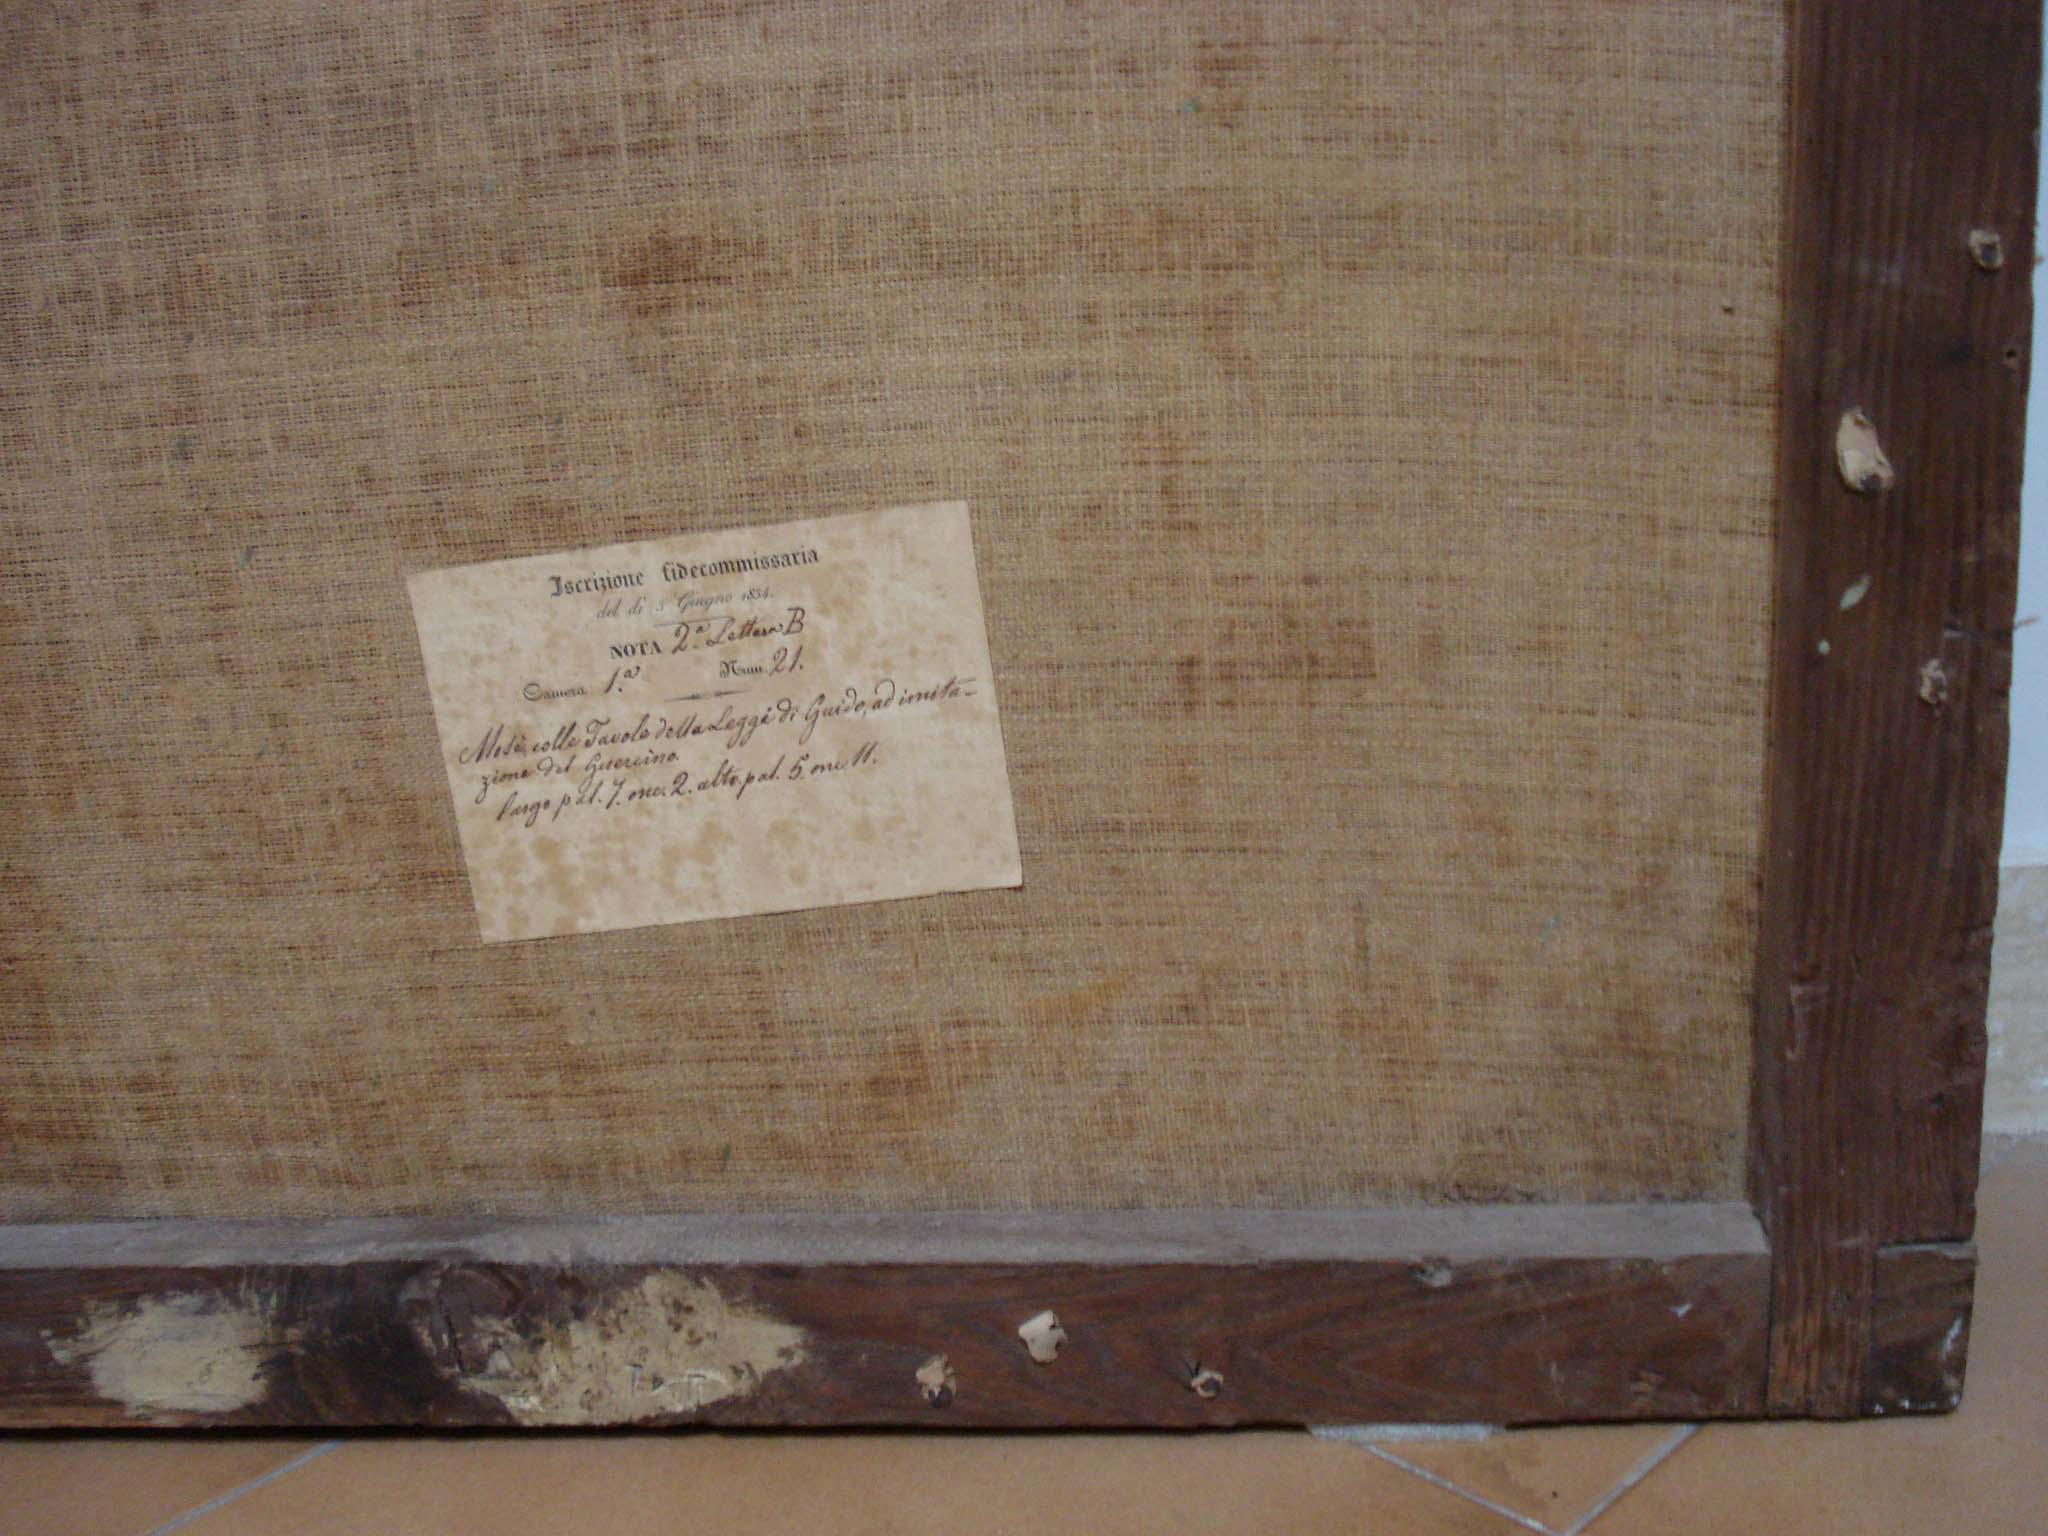 Iscrizione fidecommissaria
del dì 3 Giugno 1834.
NOTA 2.a Lettera B
Camera 1.a Num. 21.
Mosè colle Tavole della Legge di Guido, ad imita-
zione del Guercino.
largo pal. 7. onc. 2. alto pal. 5. onc. 11.